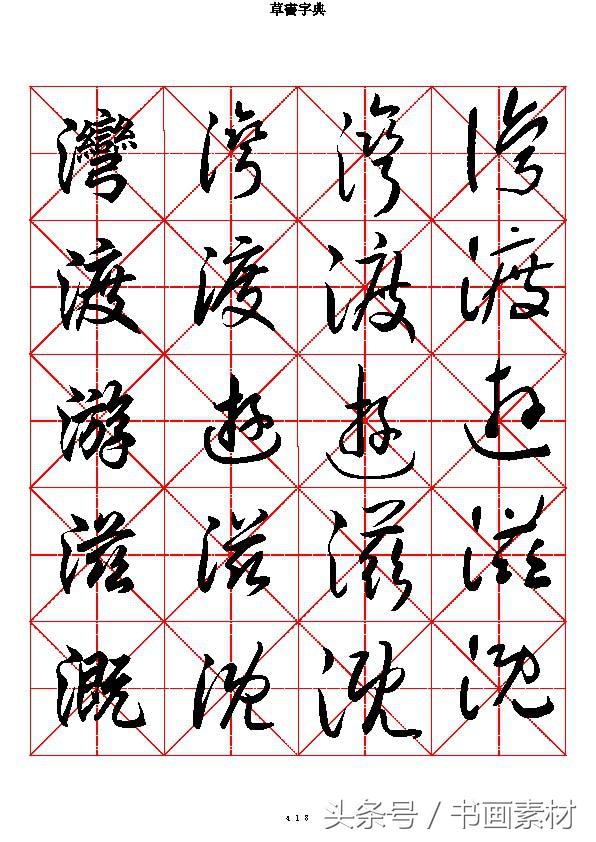 草書字典
灣灣灣灣
渡渡渡渡
游遊遊遊
滋滋滋滋
溉溉溉溉
418
头条号 / 书画素材